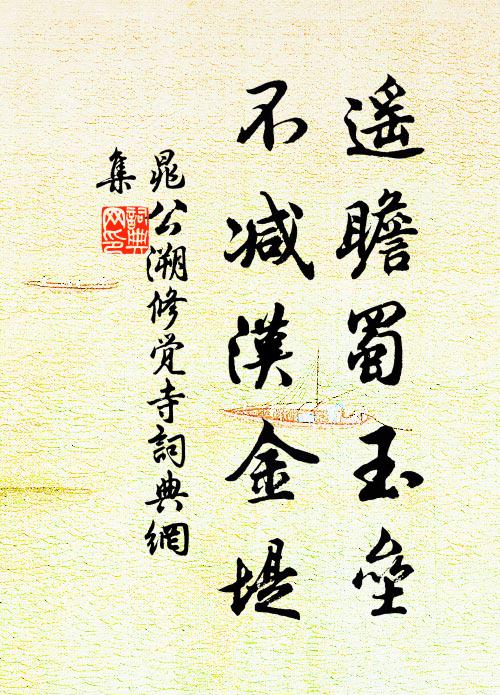 遥瞻蜀玉垒
不减汉金堤
晁公溯修觉寺詞典網
集
詞典网印